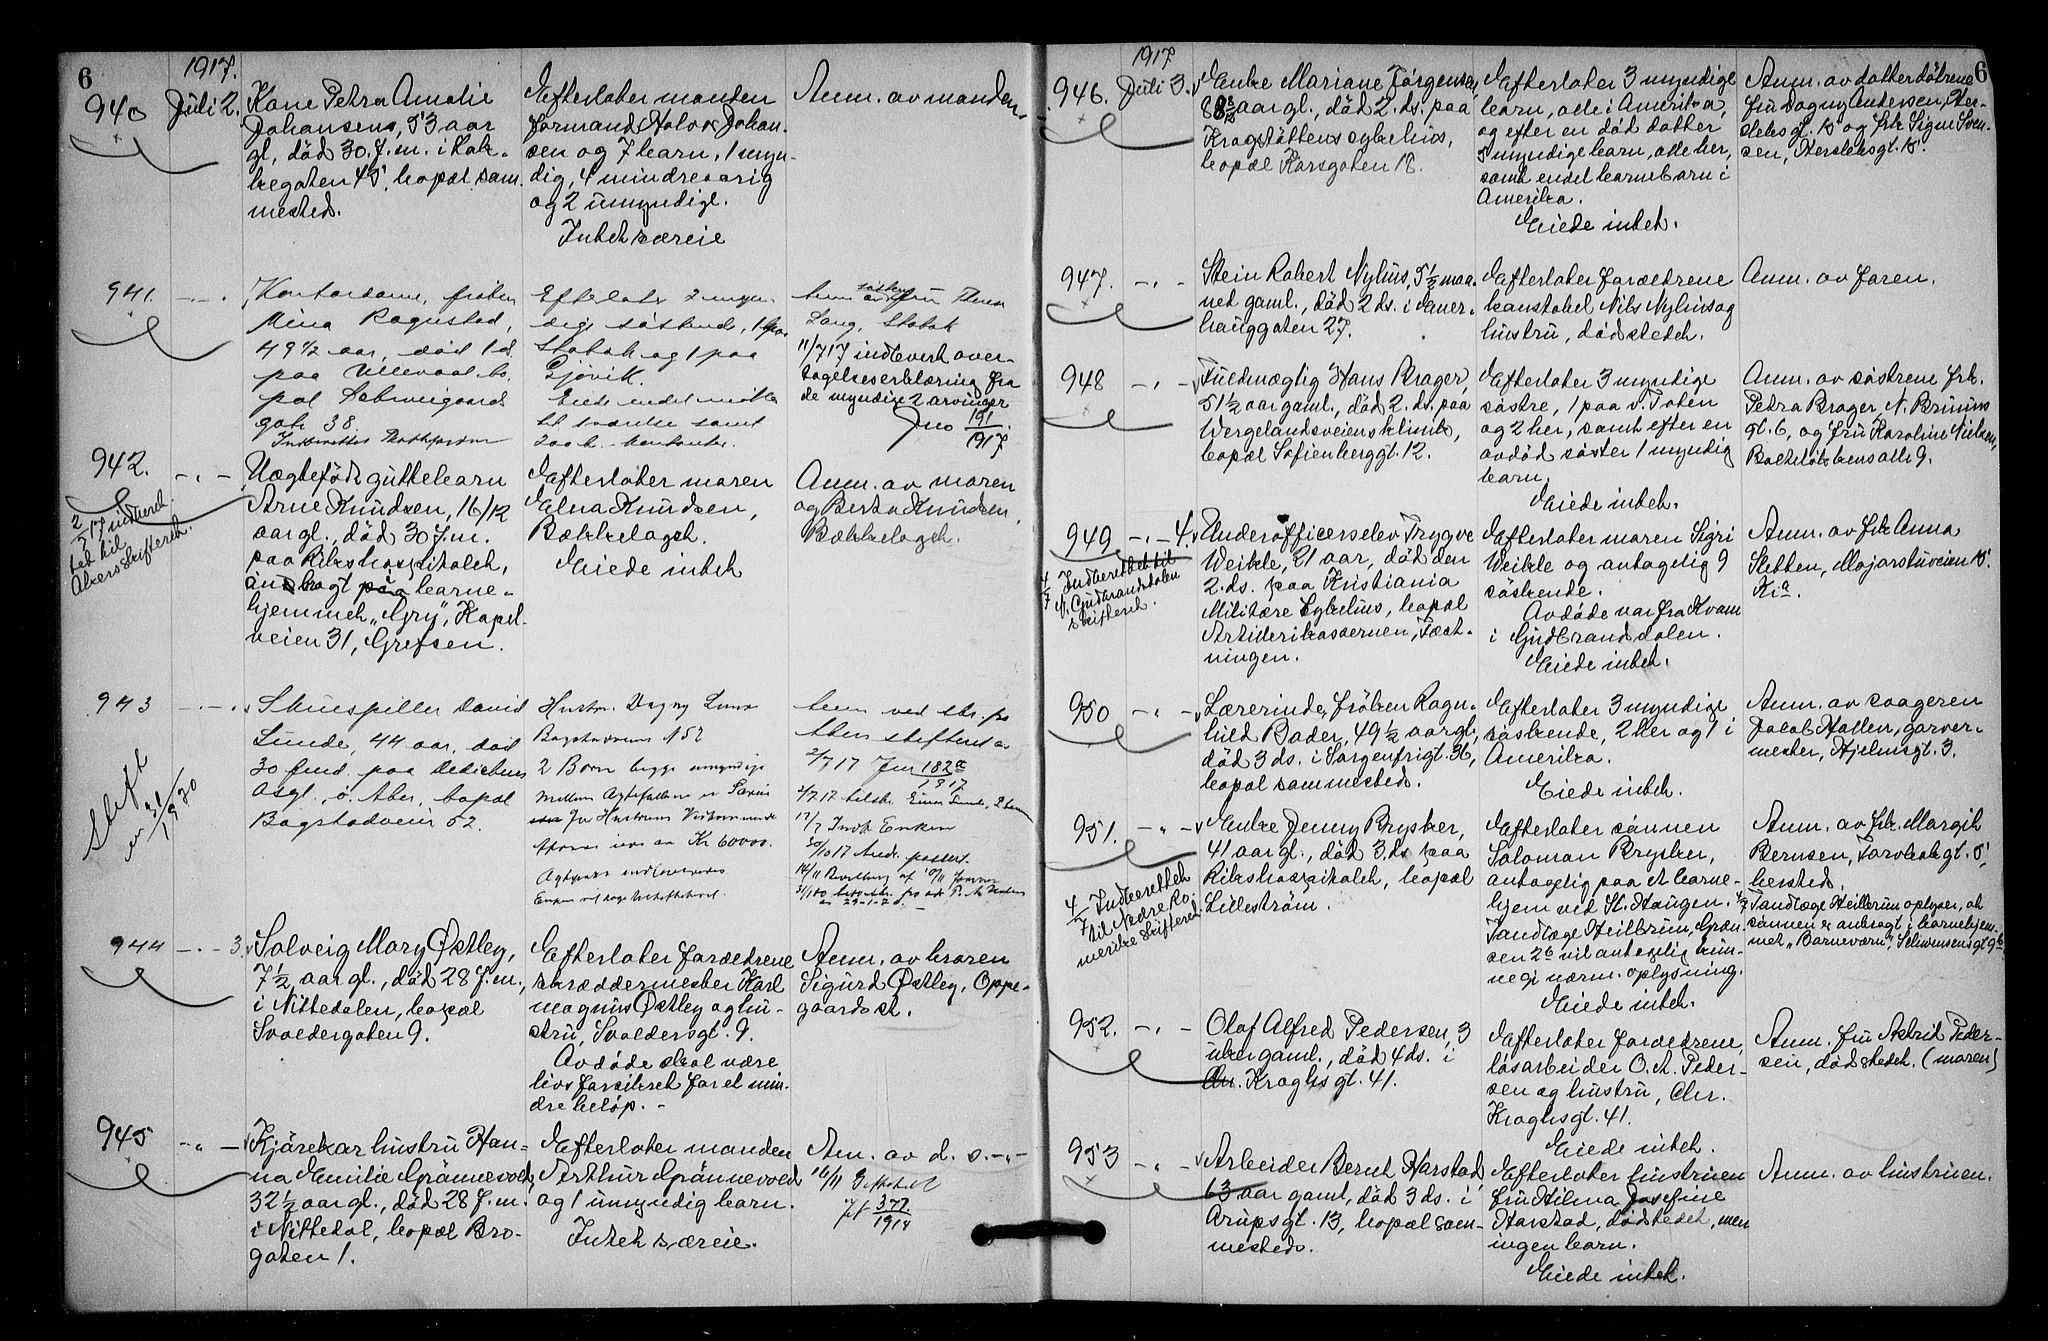 6
1917.
940
Juli 2.
Kone Petra Amalie
Johansens, 53 aar
gl., död 30. f. m. i Kak-
kegaten 45, bopæl sam-
mesteds.
Efterlater manden
formand Halvor Johan-
sen og 7 barn, 1 myn-
dig, 4 mindreaarig
og 2 umyndige.
Intet særeie
Anm. av manden.
941.
Kontordame, fröken
Mina Rognstad,
49 1/2 aar, död 1 ds.
paa Ullevaal, bo-
pæl Schweigaards
gate 38.
Efterlater 2 myn-
dige söskende, 1 paa
Stabæk og 1 paa
Gjövik.
Eiede endel möbler
Anm. av fru Thora
Lang, Stabæk
11/7 17 indlevert over-
tagelseserklæring fra
de myndige 2 arvinger
Jno 191/1917
942.
2/7 17 indberet-
tet til
Akers skifteret.
Uægtefödt guttebarn
Arne Knudsen, 16/12
aar gl., död 30 f. m.
paa Rikshospitalet,
indlagt paa barne-
hjemmet "Gry", Kapel-
veien 31, Grefsen.
Efterlater moren
Elna Knudsen,
Bækkelaget.
Eiede intet
Anm. av moren
og Berta Knudsen,
Bækkelaget.
943
Skuespiller David
Lunde, 44 aar, död
30 f. md. paa Dedichens
Asyl, ö. Aker, bopæl
Bogstadveien 52.
Hustru Dagny Lunde
Bogstadveien 52
2 Born begge umyndige
Kr 60000.
Anm. ved skr. fra
Akers skifteret av
2/7 17 Jnr 182a/1917
944
3.
Solveig Mary Østley,
7 1/2 aar gl., död 28 f. m.,
i Nittedalen, bopæl
Svoldergaten 9.
Efterlater forældrene
skræddermester Karl
Magnus Østley og hu-
stru, Svoldersgt. 9.
Avdöde skal være
livsforsikret for et min-
dre belöp. -
Anm. av broren
Sigurd Østley, Oppe-
gaard st.
945
Kjörekar hustru Han-
na Emilie Grönnevold,
32 1/2 aar gl., död 28 f. m.
i Nittedal, bopæl Bro-
gaten 1.
Efterlater manden
Arthur Grönnevold
og 1 umyndig barn.
Intet særeie.
Anm. av d. s.
377/1917
6
1917
946.
Juli 3.
Enke Mariane Jörgensen,
aar gl., död 2. ds. paa
Krogstöttens sykehus,
bopæl Korsgaten 18.
Efterlater 3 myndige
barn, alle i Amerika,
og efter en död datter
5 myndige barn, alle her,
samt endel barnebarn i
Amerika.
Eiede intet.
Anm. av datterdötrene
fru Dagny Andersen, Her-
slebsgt. 15 og frk. Signe Sven-
sen, Herslebsgt. 15.
947.
Stein Robert Nylius, 5 1/2 maa-
ned gaml., död 2 ds. i Jauer-
hauggaten 27.
Efterlater forældrene
konstabel Nils Nylius og
hustru, dödstedet.
Anm. av faren.
948
Fuldmægtig Hans Brager,
51 1/2 aar gaml., död 2. ds. paa
Wergelandsveiens klinik,
bopæl Sofienberggt. 12.
Efterlater 3 myndige
söstre, 1 paa v. Toten
og 2 her, samt efter en
avdöd söster 1 myndig
barn.
Eiede intet.
Anm. av söstrene frk.
Petra Brager, N. Bruuns
gt. 6, og fru Karoline Nielsen,
949
4.
4/7 Indberettet til
n. Gudbrandsdalen
skifteret.
Underofficerselev Trygve
Weikle, 21 aar, död den
2. ds. paa Kristiania
Militære Sykehus, bopæl
Artillerikasernen, Fæst-
ningen.
Efterlater moren Sigri
Weikle og antagelig 9
söskende.
Avdöde var fra Kvam
i Gudbrandsdalen.
Eiede intet.
Anm. av frk Anna
Sletten, Majorstuveien 15.
Kr.a
950
Lærerinde, fröken Ragn-
hild Bader, 49 1/2 aar gl.,
död 3 ds. i Sorgenfrigt. 36,
bopæl sammesteds.
Efterlater 3 myndige
söskende, 2 her og 1 i
Amerika.
Eiede intet.
Anm. av svogeren
Jacob Hallen, garver-
mester, Hjelmsgt. 3.
951.
4/7 Indberettet
til Nedre Ro-
merike skifteret.
Enke Jenny Brysker,
41 aar gl., död 3. ds paa
Rikshospitalet, bopæl
Lilleström.
Efterlater sönnen
Saloman Brysker,
antagelig paa et barne-
hjem ved St. Haugen.
Tandlæge Heilbrun, Græn-
sen 2b vil antagelig kun-
ne gi nærm. oplysning.
Eiede intet.
Anm. av frk. Margit
Bernsen,
hersteds.
4/7 Tandlæge Heilbrun oplyser, at
sönnen er anbragt i barnehjem-
met "Barnevern", Schwensensgt 9b
952.
Olaf Alfred Pedersen, 3
uker gaml., död 4 ds. i
Chr. Kroghsgt. 41.
Efterlater forældrene,
lösarbeider O. A. Peder-
sen og hustru, Chr.
Kroghsgt. 41.
Eiede intet.
Anm. fru Astrid Peder-
sen, dödstedet. (moren)
953
Arbeider Bernt Harstad
63 aar gaml., död 3 ds. i
Arupsgt. 13, bopæl sam-
mesteds.
Efterlater hustruen
fru Hilma Josefine
Harstad, dödstedet, men
ingen barn.
Eiede intet.
Anm. av hustruen.